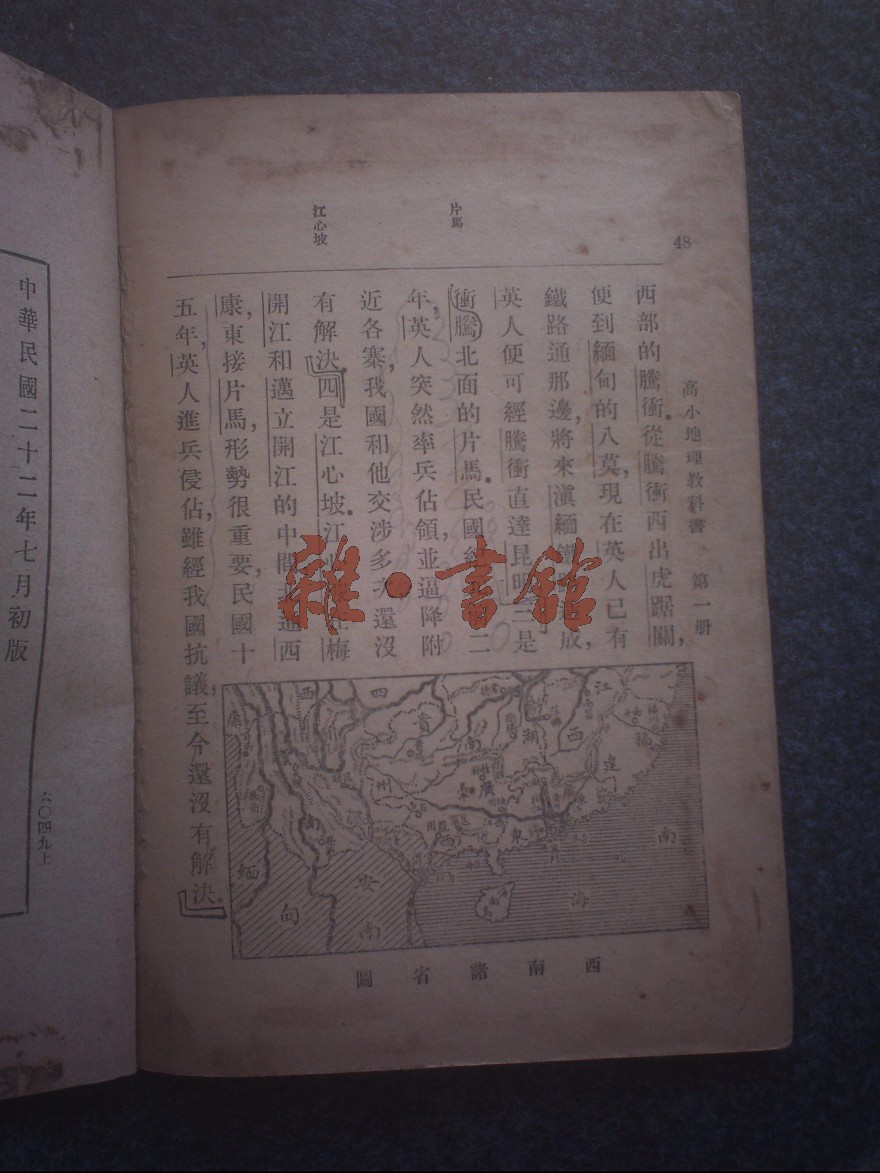 48
高小地理教科書 第一册
片馬
江心坡
西部的騰衝。從騰衝西出虎踞關,
便到緬甸的八莫,現在英人已有
鐵路通那邊,將來滇緬成,
英人便可經騰衝直達昆明。三是
衝騰北面的片馬。民國二
年,英人突然率兵佔領,並逼降附
近各寨,我國和他交涉多次,還沒
有解決。四是江心坡。江心在梅
開江和邁立開江的中間,北通西
康,東接片馬,形勢很重要,民國十
五年,英人進兵侵佔,雖經我國抗議,至今還沒有解決。
雜·書館
西 四 貴 湖 江 福
康 南 西 建
州 廣 東
緬 安 南
甸 南 海
西南諸省圖
中華民國二十二年七月初版
六〇四九上